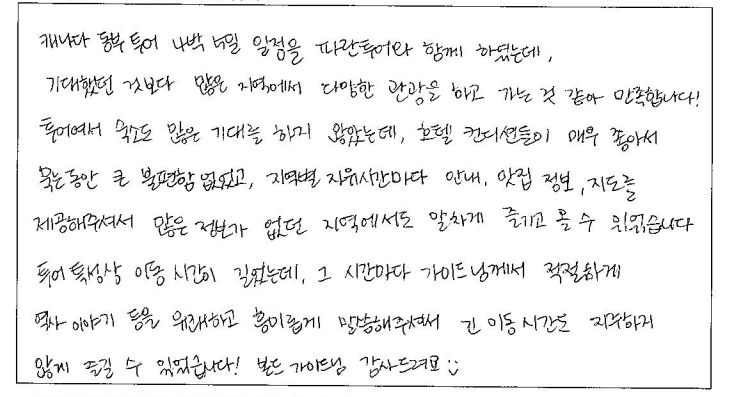 캐나다 동부 투어 4박 5일 일정을 파란투어와 함께 하였는데,
기대했던 것보다 많은 지역에서 다양한 관광을 하고 가는 것 같아 만족합니다!
투어여서 숙소도 많은 기대를 하지 않았는데, 호텔 컨디션들이 매우 좋아서
묵는동안 큰 불편함 없었고, 지역별 자유시간마다 안내, 맛집 정보, 지도를
제공해주셔서 많은 정보가 없던 지역에서도 알차게 즐기고 올 수 있었습니다
투어 특성상 이동 시간이 길었는데, 그 시간마다 가이드님께서 적절하게
역사 이야기 등을 유쾌하고 흥미롭게 말씀해주셔서 긴 이동시간도 지루하지
않게 즐길 수 있었습니다! 본드 가이드님 감사드려요 :)